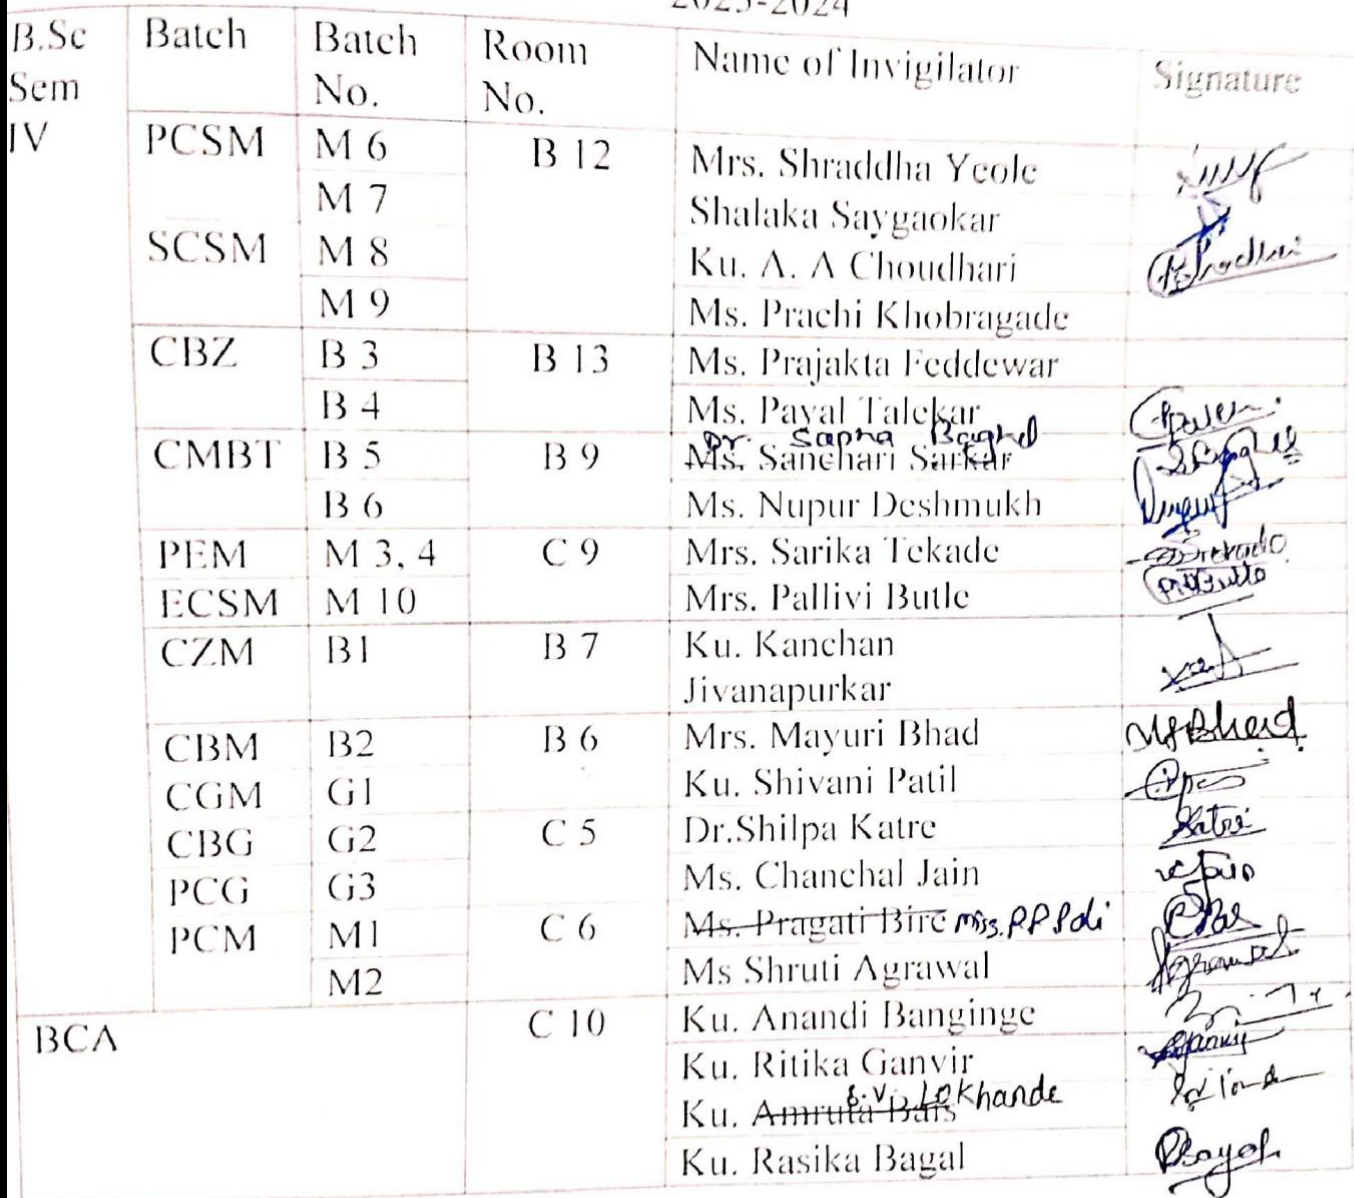 2023-2024
B.Sc Sem Batch Batch No. Room No. Name of Invigilator Signature
IV PCSM M 6 B 12 Mrs. Shraddha Yeole
M 7 Shalaka Saygaokar
SCSM M 8 Ku. A. A Choudhari
M 9 Ms. Prachi Khobragade
CBZ B 3 B 13 Ms. Prajakta Feddewar
B 4 Ms. Payal Talekar
Dr. Sapna Baghel
CMBT B 5 B 9 Ms. Sanchari Sarkar
B 6 Ms. Nupur Deshmukh
PEM M 3, 4 C 9 Mrs. Sarika Tekade
ECSM M 10 Mrs. Pallivi Butle
CZM B1 B 7 Ku. Kanchan
Jivanapurkar
CBM B2 B 6 Mrs. Mayuri Bhad
CGM G1 Ku. Shivani Patil
CBG G2 C 5 Dr.Shilpa Katre Katre
PCG G3 Ms. Chanchal Jain
PCM M1 C 6 Ms. Pragati Bire Miss. P P
M2 Ms Shruti Agrawal
BCA C 10 Ku. Anandi Banginge
Ku. Ritika Ganvir
S.V. Lokhande
Ku. Amruta Bais
Ku. Rasika Bagal